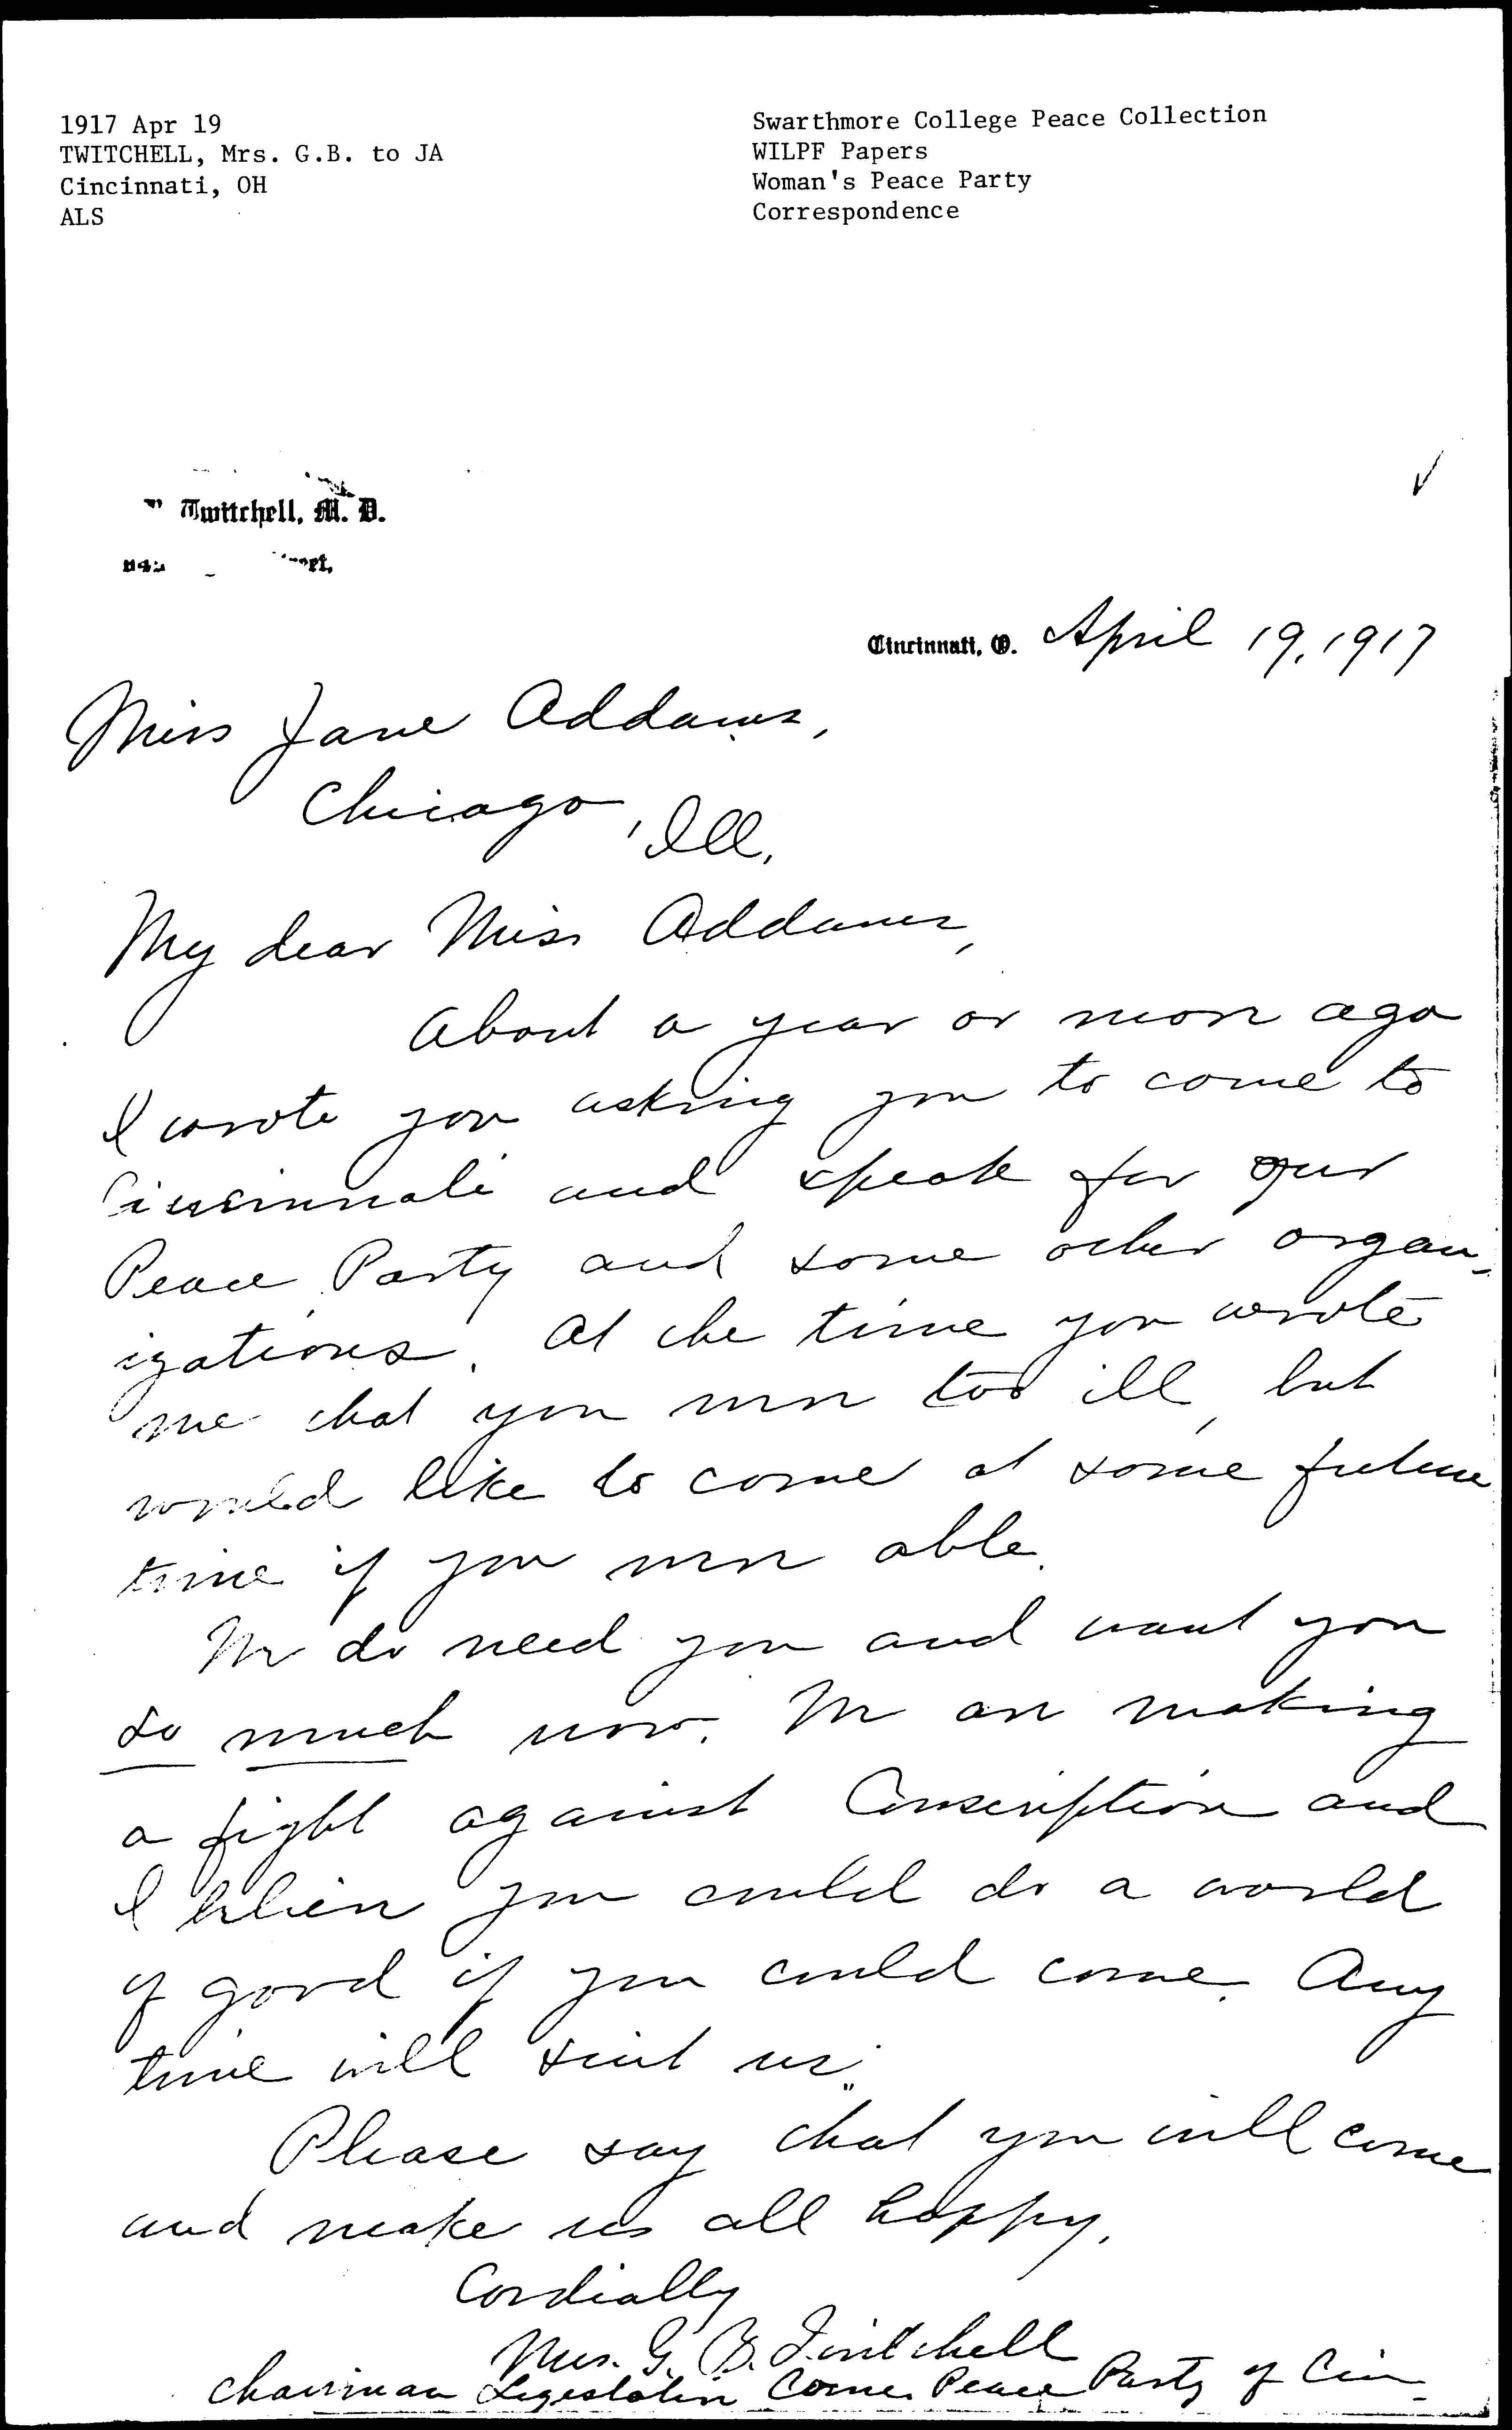 1917 Apr 19
TWITCHELL, Mrs. G.B. to JA
Cincinnati, OH
ALS
Swarthmore College Peace Collection
WILPF Papers
Woman's Peace Party
Correspondence
Twitchell, M. D.
Cincinnati, O. April 19, 1917
Miss Jane Addams,
Chicago, Ill.
My dear Miss Addams,
About a year or more ago
I wrote you asking you to come to
Cincinnati and speak for our
Peace Party and some other organ-
izations. At the time you wrote
me that you were too ill, but
would like to come at some future
time if you were able.
We do need you and want you
so much now. We are making
a fight against Conscription and
I believe you could do a world
of good if you could come. Any
time will suit us.
Please say that you will come
and make us all happy.
Cordially
Mrs. G. B. Twitchell
Chairman Legislative Com. Peace Party of Cin